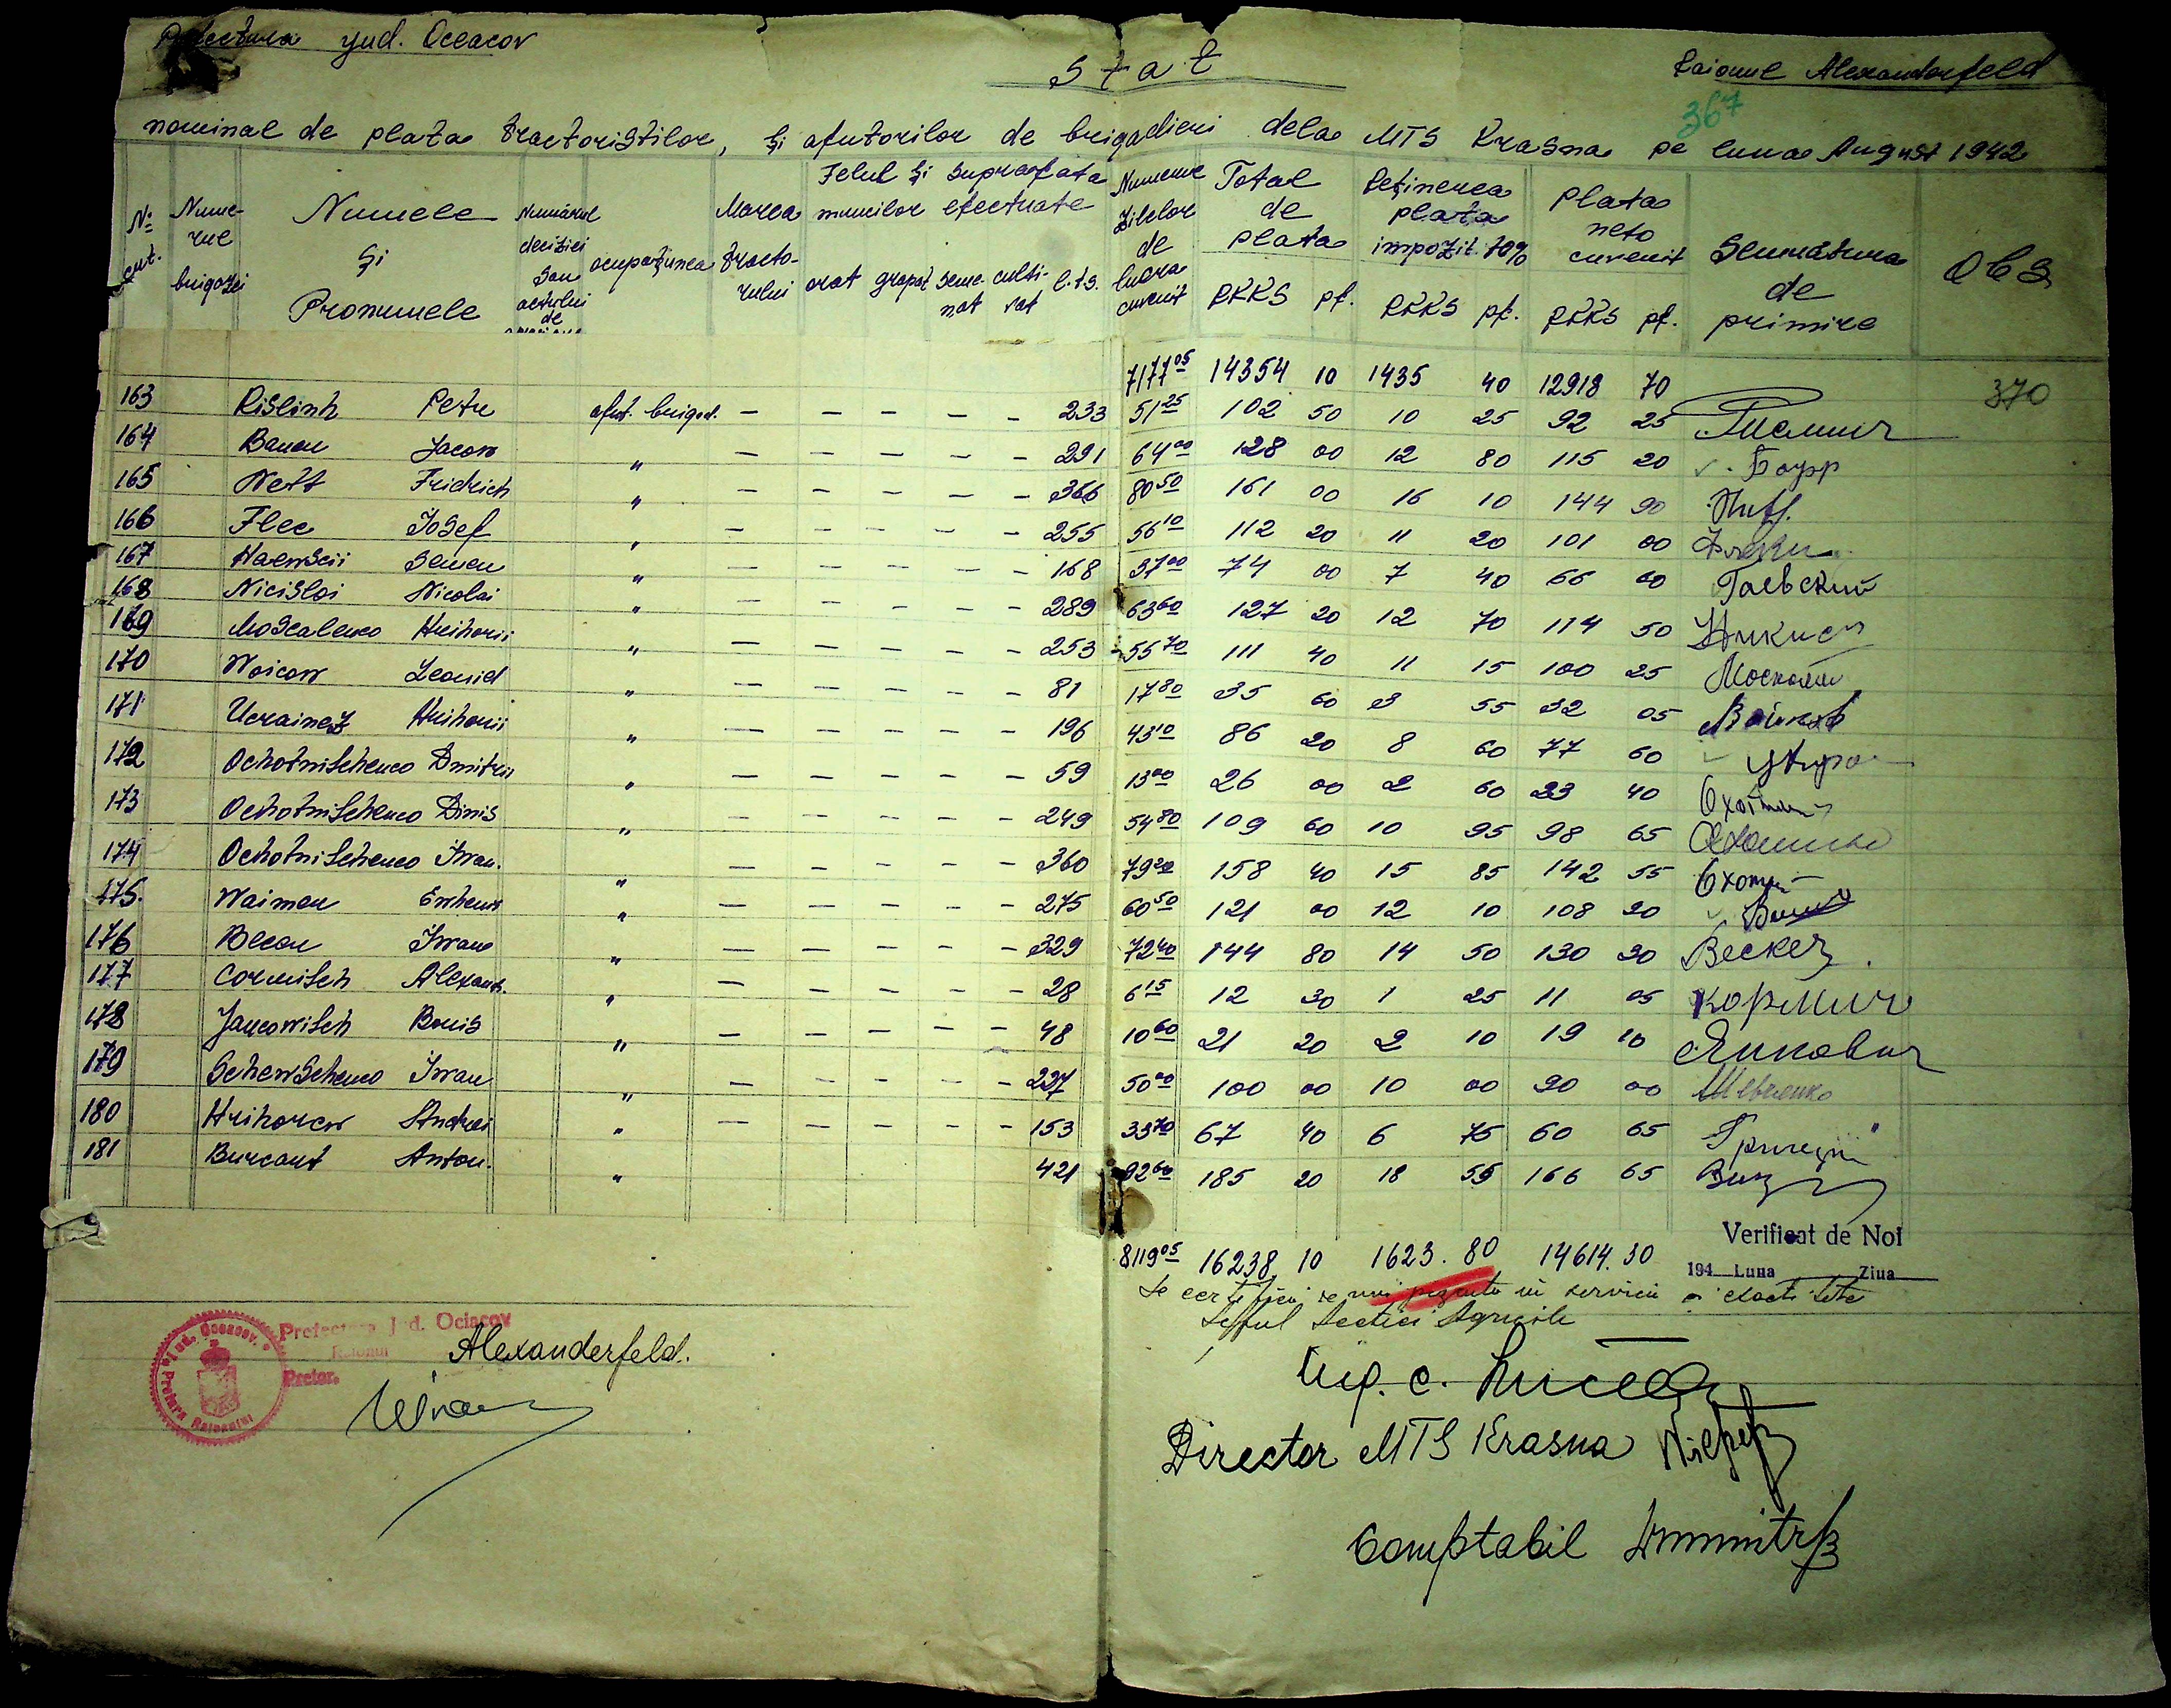 Prefectura jud. Oceacov
Stat
Raionul Alexanderfeld
367
nominal de plata tractoristilor, și afutorilor de brigadieri dela MTS Krasna pe luna August 1942
№ crt.
Numerul brigazei
Numele și Pronumele
Numărul deciziei sau actului de
ocupațiunea
Marca tractorului
Felul și suprafata muncilor efectuate
arat grapat semenat cultivat l.t.s.
Numerul zilelor de lucra cuvenit
Total de plata RKKS pf.
Reținerea plata impozit. 10% RKKS pf.
Plata neto cuvenit RKKS pf.
Semnătura de primire
Obs
7177 05 14354 10 1435 40 12918 70
370
163 Rislinh Petru afut. brigad. - - - - - - 233 51 25 102 50 10 25 92 25
164 Bauer Jacow " - - - - - - 291 64 00 128 00 12 80 115 20 Бауэр
165 Nett Fridrich " - - - - - - 366 80 50 161 00 16 10 144 90
166 Flec Josef " - - - - - - 255 56 10 112 20 11 20 101 00
167 Haewscii Semen " - - - - - - 168 37 00 74 00 7 40 66 60 Гаевский
168 Nicisloi Nicolai " - - - - - - 289 63 60 127 20 12 70 114 50
169 Moscalenco Hrihorii " - - - - - - 253 55 70 111 40 11 15 100 25
170 Woicow Leonid " - - - - - - 81 17 80 35 60 3 55 32 05
171 Ucrainez Hrihorii " - - - - - - 196 43 10 86 20 8 60 77 60
172 Ochotnischenco Dmitrii " - - - - - - 59 13 00 26 00 2 60 23 40
173 Ochotnischenco Dinis " - - - - - - 249 54 80 109 60 10 95 98 65
174 Ochotnischenco Iwan. " - - - - - - 360 79 20 158 40 15 85 142 55
175. Waiman Ewhenii " - - - - - - 275 60 50 121 00 12 10 108 90
176 Becar Iwan " - - - - - - 329 72 40 144 80 14 50 130 30 Becker
177 Cormisch Alexand. " - - - - - - 28 6 15 12 30 1 25 11 05 Кормич
178 Jancowisch Boris " - - - - - - 48 10 60 21 20 2 10 19 10 Янкович
179 Schewschenco Iwan " - - - - - - 227 50 00 100 00 10 00 90 00 Шевченко
180 Hrihorew Andrei " - - - - - - 153 33 70 67 40 6 75 60 65
181 Burcart Anton. " 421 92 60 185 20 18 55 166 65
8119 05 16238 10 1623. 80 14614. 30
Verificat de Noi
194 Luna Ziua
Se certifica
Șeful Sectiei Agricole
Ing. C.
Director MTS Krasna
Comptabil
Prefectura Jud. Ociacov
Raionul Alexanderfeld.
Pretor.
Jud. Oceacov. Pretura Raionului